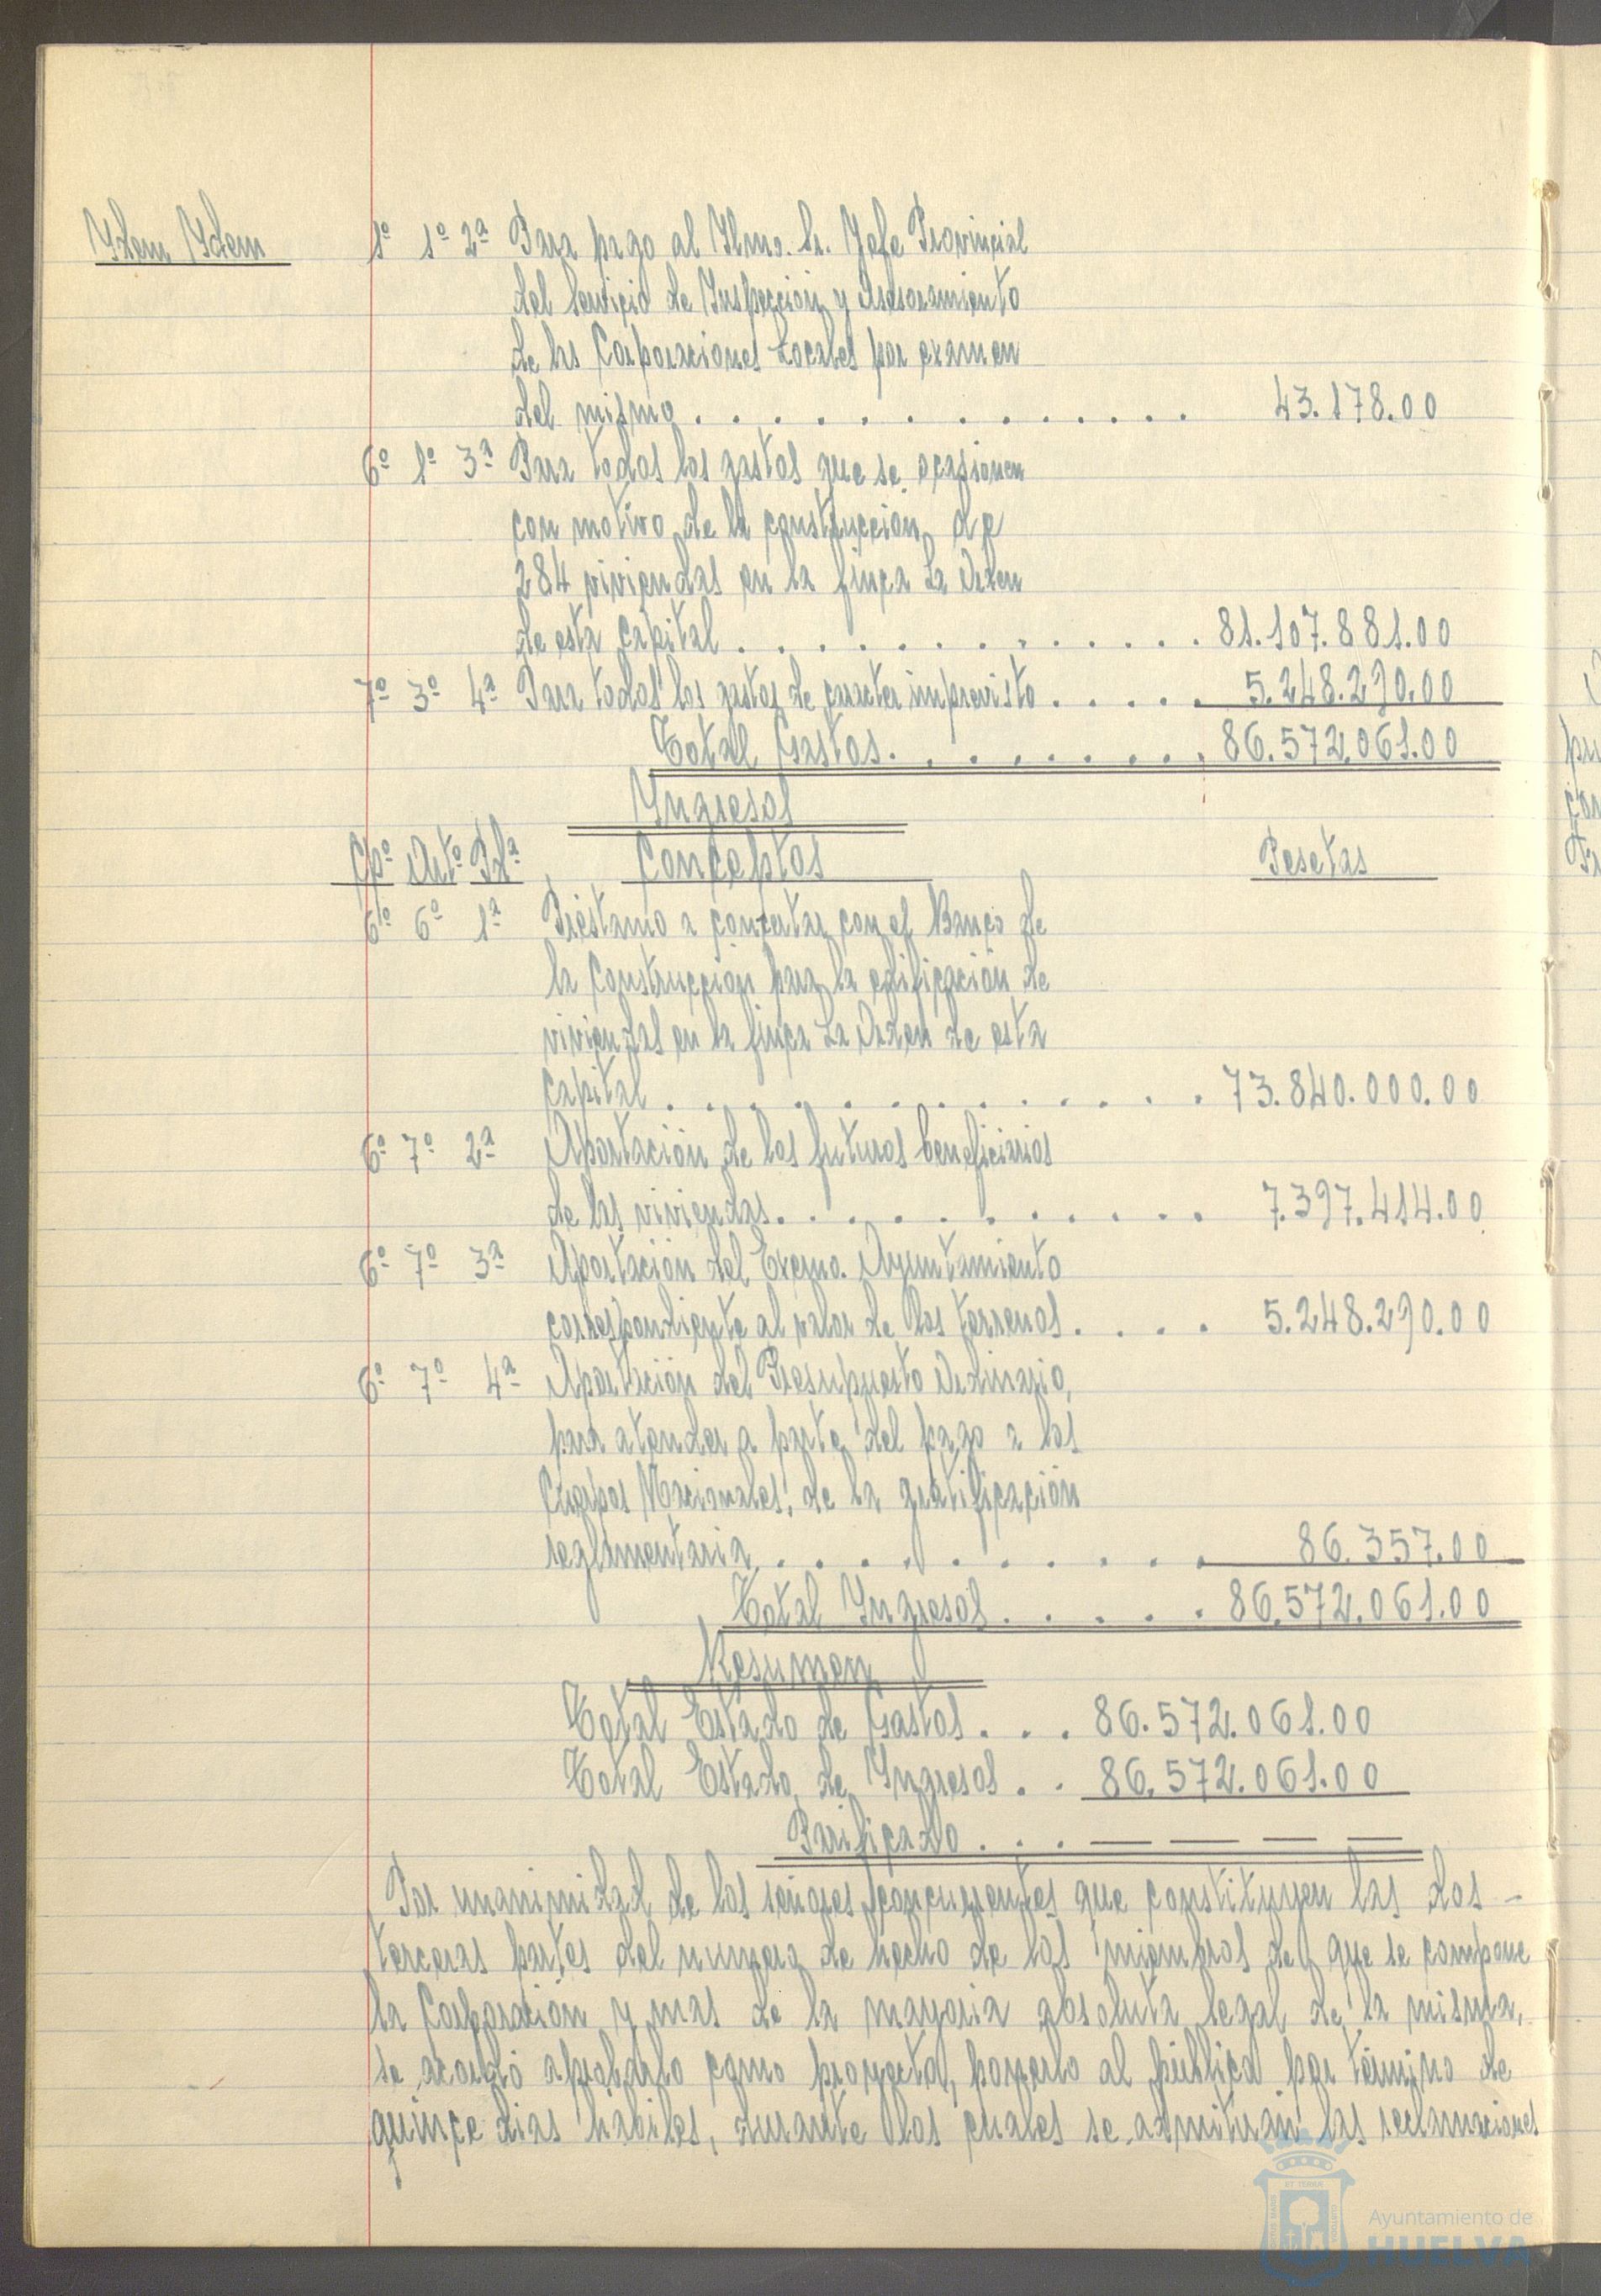 Ydem Ydem
1º 1º 2ª Para pago al Ylmo. Sr. Jefe Provincial
del Servicio de Ynspección y Asesoramiento
de las Corporaciones Locales por examen
del mismo . . . . . . . . . . . . 43.178.00
6º 1º 3ª Para todos los gastos que se ocasionen
con motivo de la construcción de
284 viviendas en la finca La Orden
de esta capital . . . . . . . . . . . . 81.107.881.00
7º 3º 4ª Para todos los gastos de caracter imprevisto . . . . . 5.248.290.00
Total Gastos. . . . . . . . 86.572.061.00
Yngresos
Cpº Artº Pdª Conceptos Pesetas
6º 6º 1ª Préstamo a concertar con el Banco de
la Construcción para la edificación de
viviendas en la finca La Orden de esta
capital . . . . . . . . . . . . . 73.840.000.00
6º 7º 2ª Aportación de los futuros beneficiarios
de las viviendas. . . . . . . . . . 7.397.414.00
6º 7º 3ª Aportación del Excmo. Ayuntamiento
correspondiente al valor de los terrenos . . . . 5.248.290.00
6º 7º 4ª Aportación del Presupuesto Ordinario,
para atender a parte del pago a los
Cuerpos Nacionales, de la gratificación
reglamentaria . . . . . . . . . . 86.357.00
Total Yngresos . . . . . 86.572.061.00
Resumen
Total Estado de Gastos . . . 86.572.061.00
Total Estado de Yngresos . . 86.572.061.00
Parificado . . . — — — —
Por unanimidad de los señores concurrentes que constituyen las dos -
terceras partes del numero de hecho de los miembros de que se compone
la Corporación y mas de la mayoria absoluta legal de la misma,
se acordó aprobarlo como proyecto, ponerlo al público por término de
quince dias habiles, durante los cuales se admitirán las reclamaciones
Ayuntamiento de
HUELVA